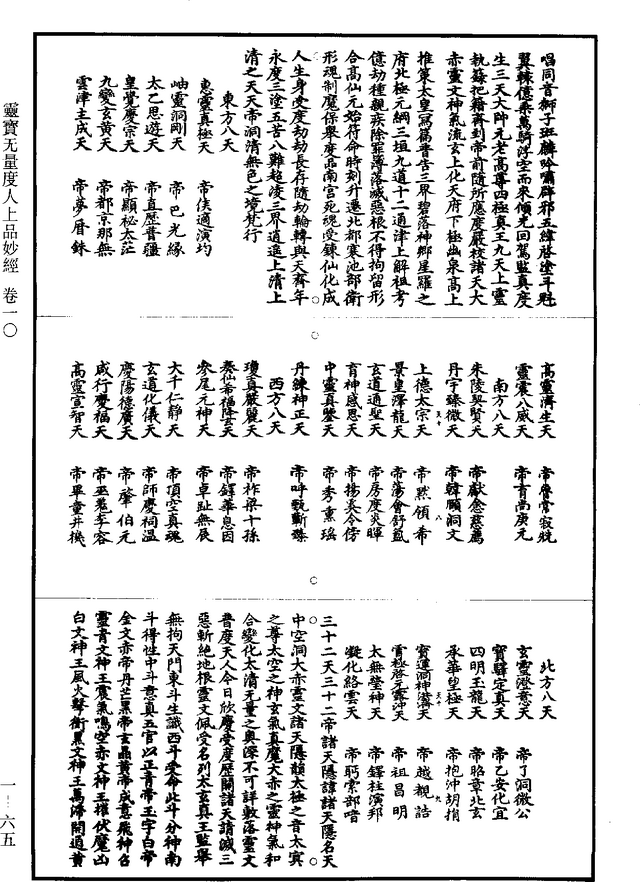 唱同音獅子班麟吟嘯辟邪五緯啓塗斗魁
翼轅億乘萬騎浮空而來傾光回駕監真度
生三天大帥元老高尊四極真王九天上靈
執籙把籍齊到帝前隨所應度嚴校諸天大
赤靈文神氣流玄上化天府下極幽泉高上
推策太皇寫篇普告三界碧落神鄉星羅之
府北極元綱三垣九道十二通津上解祖考
億劫種親疾除罪簿落滅惡根不得拘留形
合高仙元始符命時刻升遷北都寒池部衛
形魂制魔保舉度品南宮死魂受鍊仙化成
人生身受度劫劫長存隨劫輪轉與天齊年
永度三塗五苦八難超淩三界逍遙上清上
清之天天帝洞清無色之境梵行
東方八天
惠靈真極天 帝侯適演
岫靈洞剛天 帝巴光緣
太乙思遊天 帝直歷普疆
皇覺慶宗天 帝顯祕太茫
九變玄黃天 帝都京那無
雲津主成天 帝夢眉銖
高靈濟生天 帝魯常寂
靈震八威天 帝育尚庚元
南方八天
朱陵契賢天 帝獻念慈薦
丹宇臻微天 帝韓願洞文
上德太宗天 帝然領希
景皇澤龍天 帝蕩會舒籃
玄道通聖天 帝房度炎暉
育神感恩天 帝揚奚令傍
中靈真鑒天 帝秀熏瑤
丹鍊神正天 帝呼甄斳臻
西方八天
瓊真嚴麗天 帝柞梁十孫
奏仙希福降雲天 帝鐸華息因
參尾元神天 帝卓趾無展
大千仁靜天 帝頂空真魂
玄道化儀天 帝師慶祠溫
慶陽德廣天 帝肇伯元
咸行慶福天 帝巫蒐李容
高靈宣智天 帝畢童井機
北方八天
玄靈澄意天 帝了洞微公
寶驛定真天 帝乙安化宜
四明玉龍天 帝昭章北玄
承華望極天 帝抱沖胡捎
寶運洞神濟天 帝越觀誥
霄極啓元露沖天 帝祖昌明
太無瑩神天 帝鐸柱演邦
凝化絡雲天 帝躬索部喑
三十二天三十二帝諸天隱諱諸天隱名天
中空洞大赤靈文諸天隱韻太極之音太寅
之尊太空之神玄氣真魔大赤之靈神氣和
合變化太清无量之奧深不可詳敷落靈文
普度天人今日欣慶受度歷關諸天請滅三
惡斬絕地根靈文佩受名列太玄真王監舉
無拘天門東斗生識西斗受命北斗分神南
斗得性中斗意真五官以正青帝王字白帝
金文赤帝丹芒黑帝玄晶黄帝成意飛神召
靈青文神王震氣鳴空赤文神王摧伏魔凶
白文神王風火擊衝黑文神王萬滯開通黄
靈寶无量度人上品妙經 卷一〇
一—六五